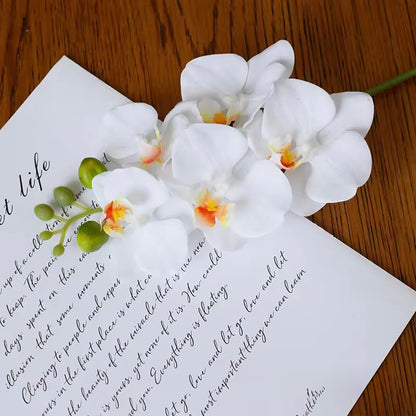 et life
e up of a colle
to keep. The pain exper
days spent on this
illusion that some moments
Clinging to people and exper
ours in the first place is what ca
the beauty of the miracle that is the
is yours yet none of it is. How could
you. Everything is fleeting.
go, love and let go, love and let
important thing we can learn